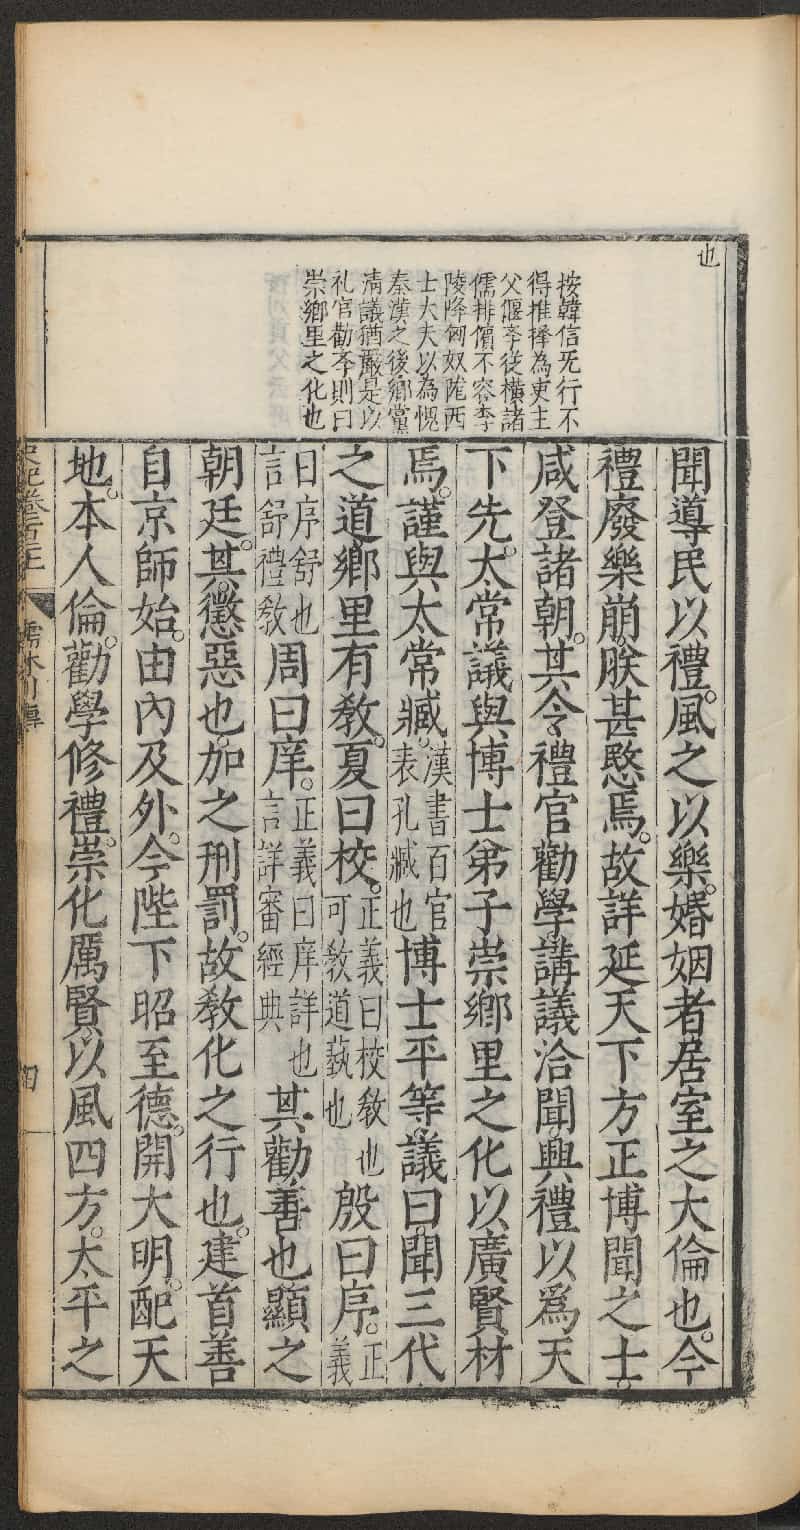 也
按韓信旡行不
得推擇為吏主
父偃斈従横諸
儒排儐不容李
陵降匈奴隴西
士大夫以為愧
秦漢之後郷黨
清議猶嚴是以
礼官勸斈則曰
崇郷里之化也
聞導民以禮。風之以樂。婚姻者居室之大倫也。今
禮廢樂崩。朕甚愍焉。故詳延天下方正博聞之士。
咸登諸朝。其令禮官勸學講議洽聞興禮以爲天
下先。太常議與博士弟子崇鄉里之化以廣賢材
焉。謹與太常臧。漢書百官表孔臧也博士平等議曰。聞三代
之道鄉里有敎。夏曰校。正義曰校敎也可敎道蓺也殷曰序。正義
曰序舒也言舒禮敎周曰庠。正義曰庠詳也言詳審經典其勸善也顯之
朝廷。其懲惡也。加之刑罰。故敎化之行也。建首善
自京師始。由內及外。今陛下昭至德。開大明。配天
地。本人倫。勸學修禮。崇化厲賢以風四方。太平之